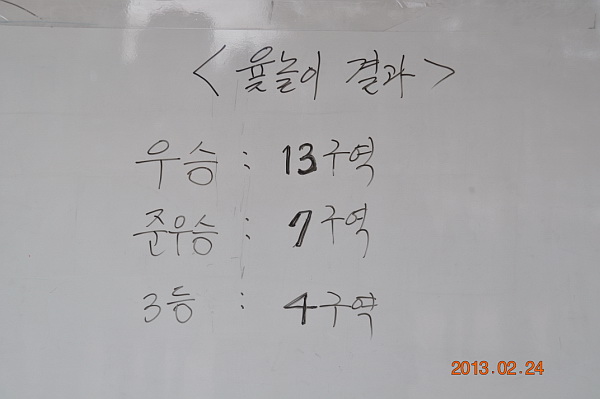 <윷놀이 결과>
우승 : 13구역
준우승 : 7구역
3등 : 4구역
2013.02.24